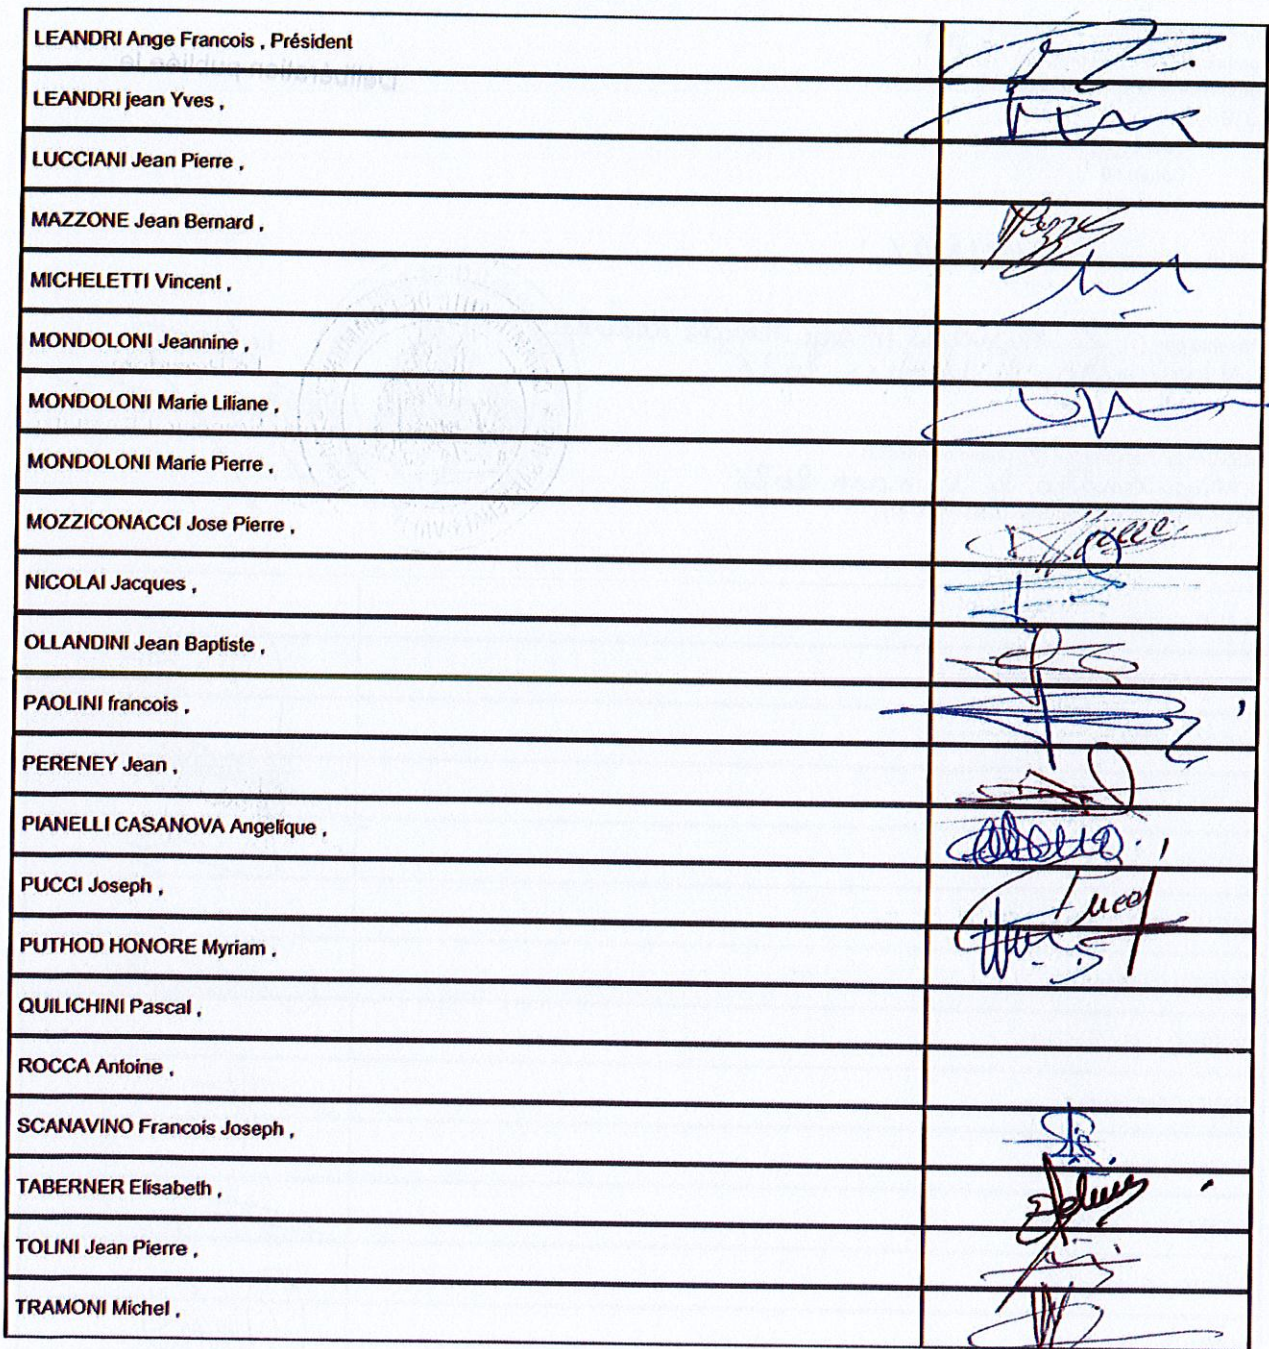 LEANDRI Ange Francois , Président
LEANDRI jean Yves ,
LUCCIANI Jean Pierre ,
MAZZONE Jean Bernard ,
MICHELETTI Vincent ,
MONDOLONI Jeannine ,
MONDOLONI Marie Liliane ,
MONDOLONI Marie Pierre ,
MOZZICONACCI Jose Pierre ,
NICOLAI Jacques ,
OLLANDINI Jean Baptiste ,
PAOLINI francois ,
PERENEY Jean ,
PIANELLI CASANOVA Angelique ,
PUCCI Joseph ,
Pucci
PUTHOD HONORE Myriam ,
QUILICHINI Pascal ,
ROCCA Antoine ,
SCANAVINO Francois Joseph ,
TABERNER Elisabeth ,
TOLINI Jean Pierre ,
TRAMONI Michel ,